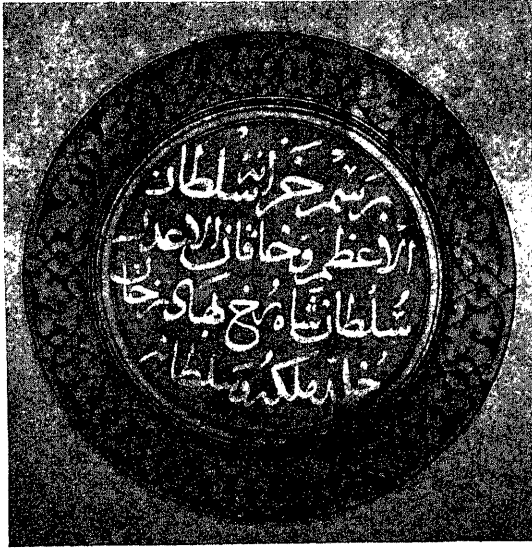 برسم خزانة سلطان
الاعظم وخاقان الاعدل
سلطان شاه رخ بهادر خان
خلد ملكه وسلطانه